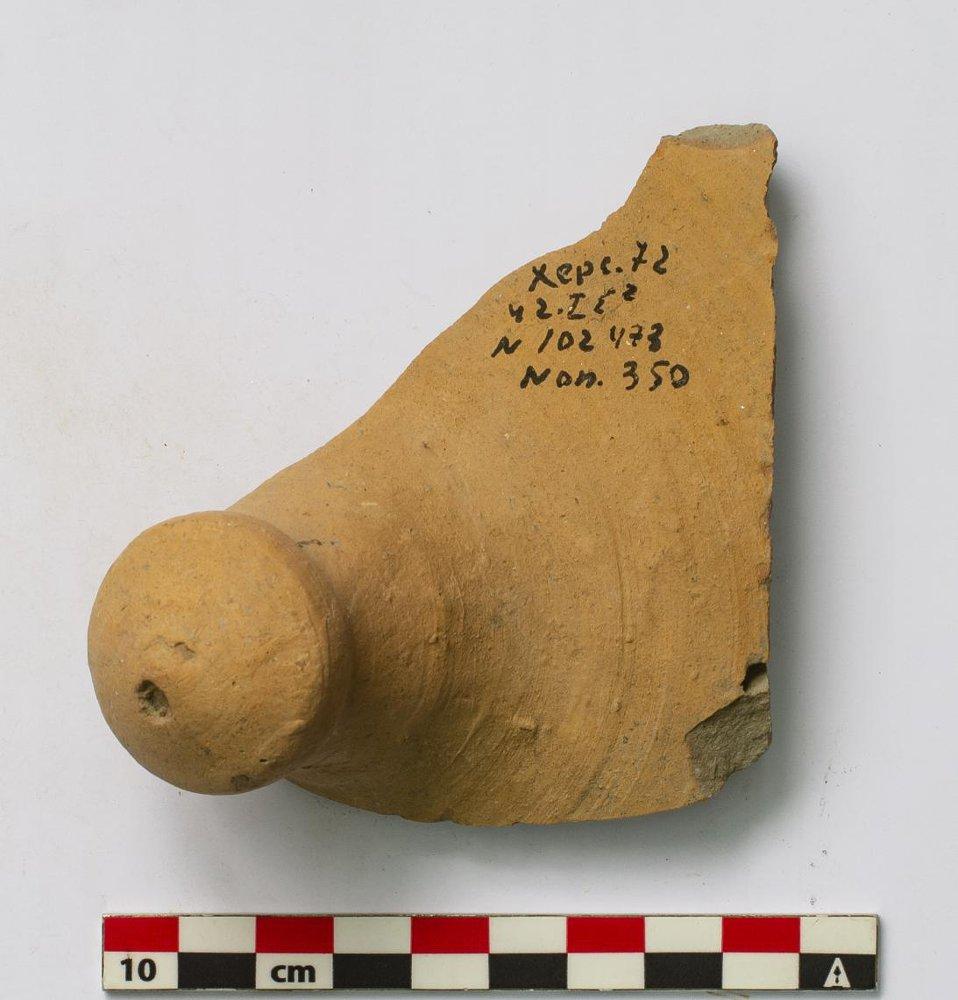 Херс. 72
ч 2. I Е²
N 102 473
Nоп. 350
10 cm